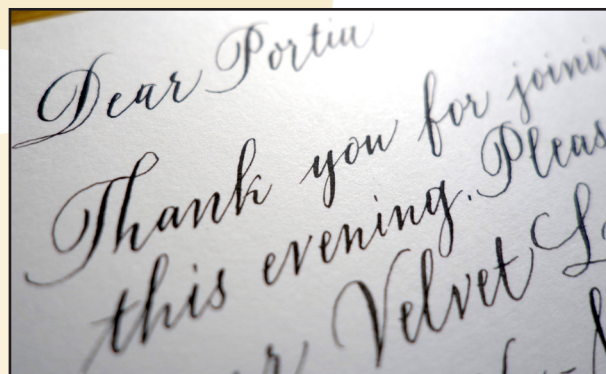 Dear Portia
Thank you for joinin
this evening. Pleas
Velvet